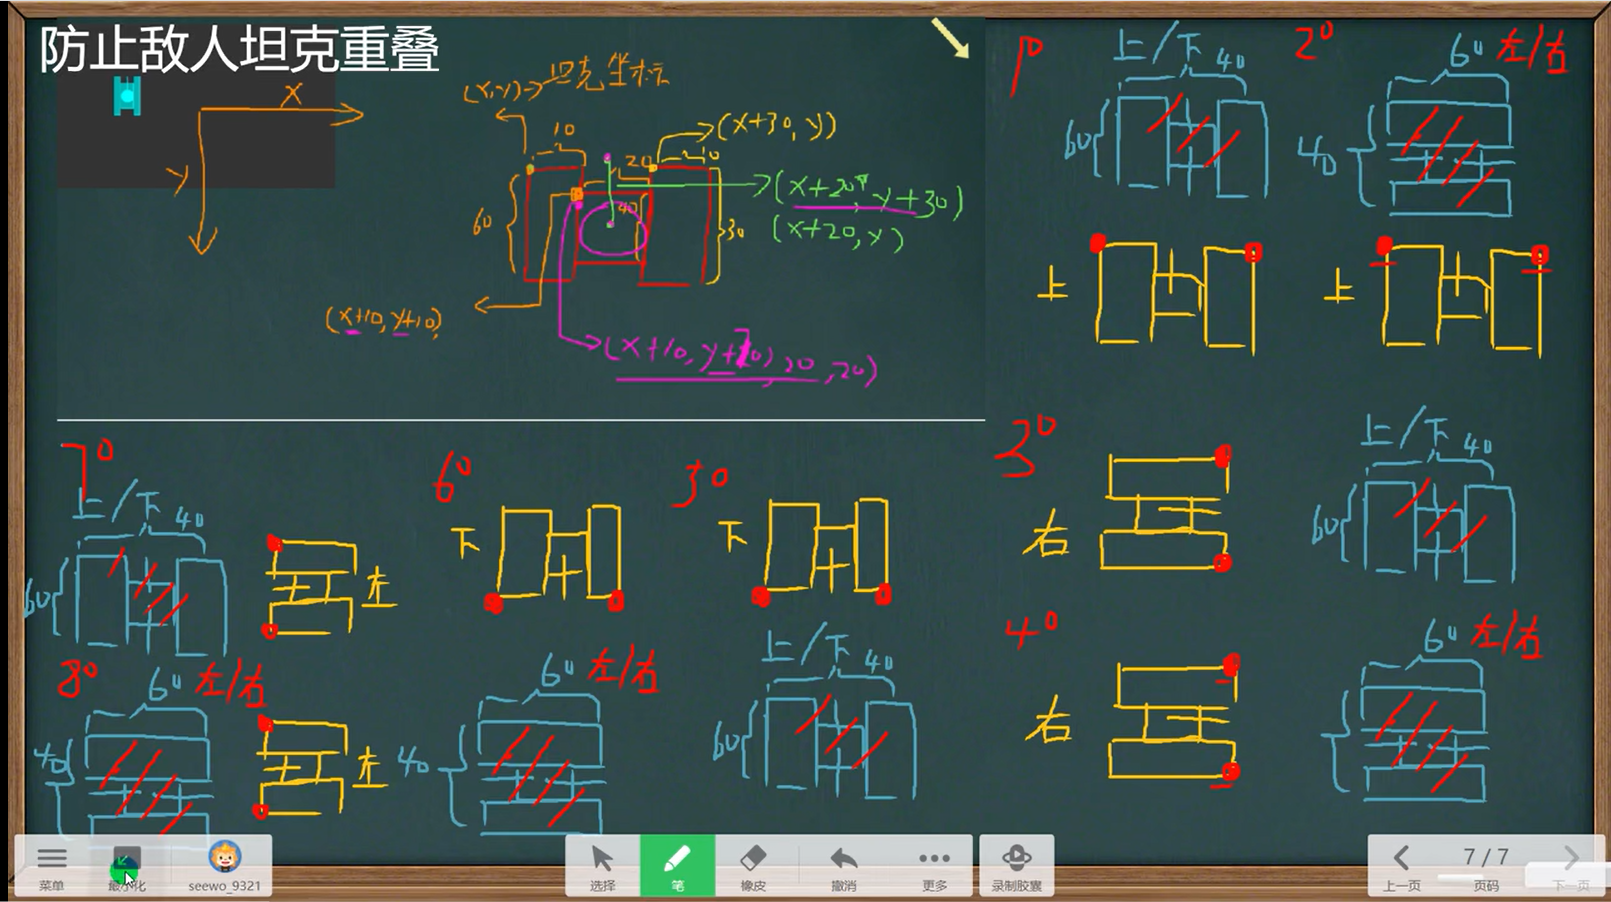 防止敌人坦克重叠
X
Y
(x,y)→坦克坐标
10
(x+30,y)
20
10
60
40
30
(x+20,y+30)
(x+20,y)
(x+10,y+10)
(x+10,y+10),20,20)
1°
上/下 40
60
2°
60 左/右
40
上
上
3°
右
上/下 40
60
4°
右
60 左/右
7°
上/下 40
60
左
6°
下
5°
下
8°
60 左/右
40
左
60 左/右
40
上/下 40
60
菜单
最小化
seewo_9321
选择
笔
橡皮
撤消
更多
录制胶囊
上一页
7/7
页码
下一页